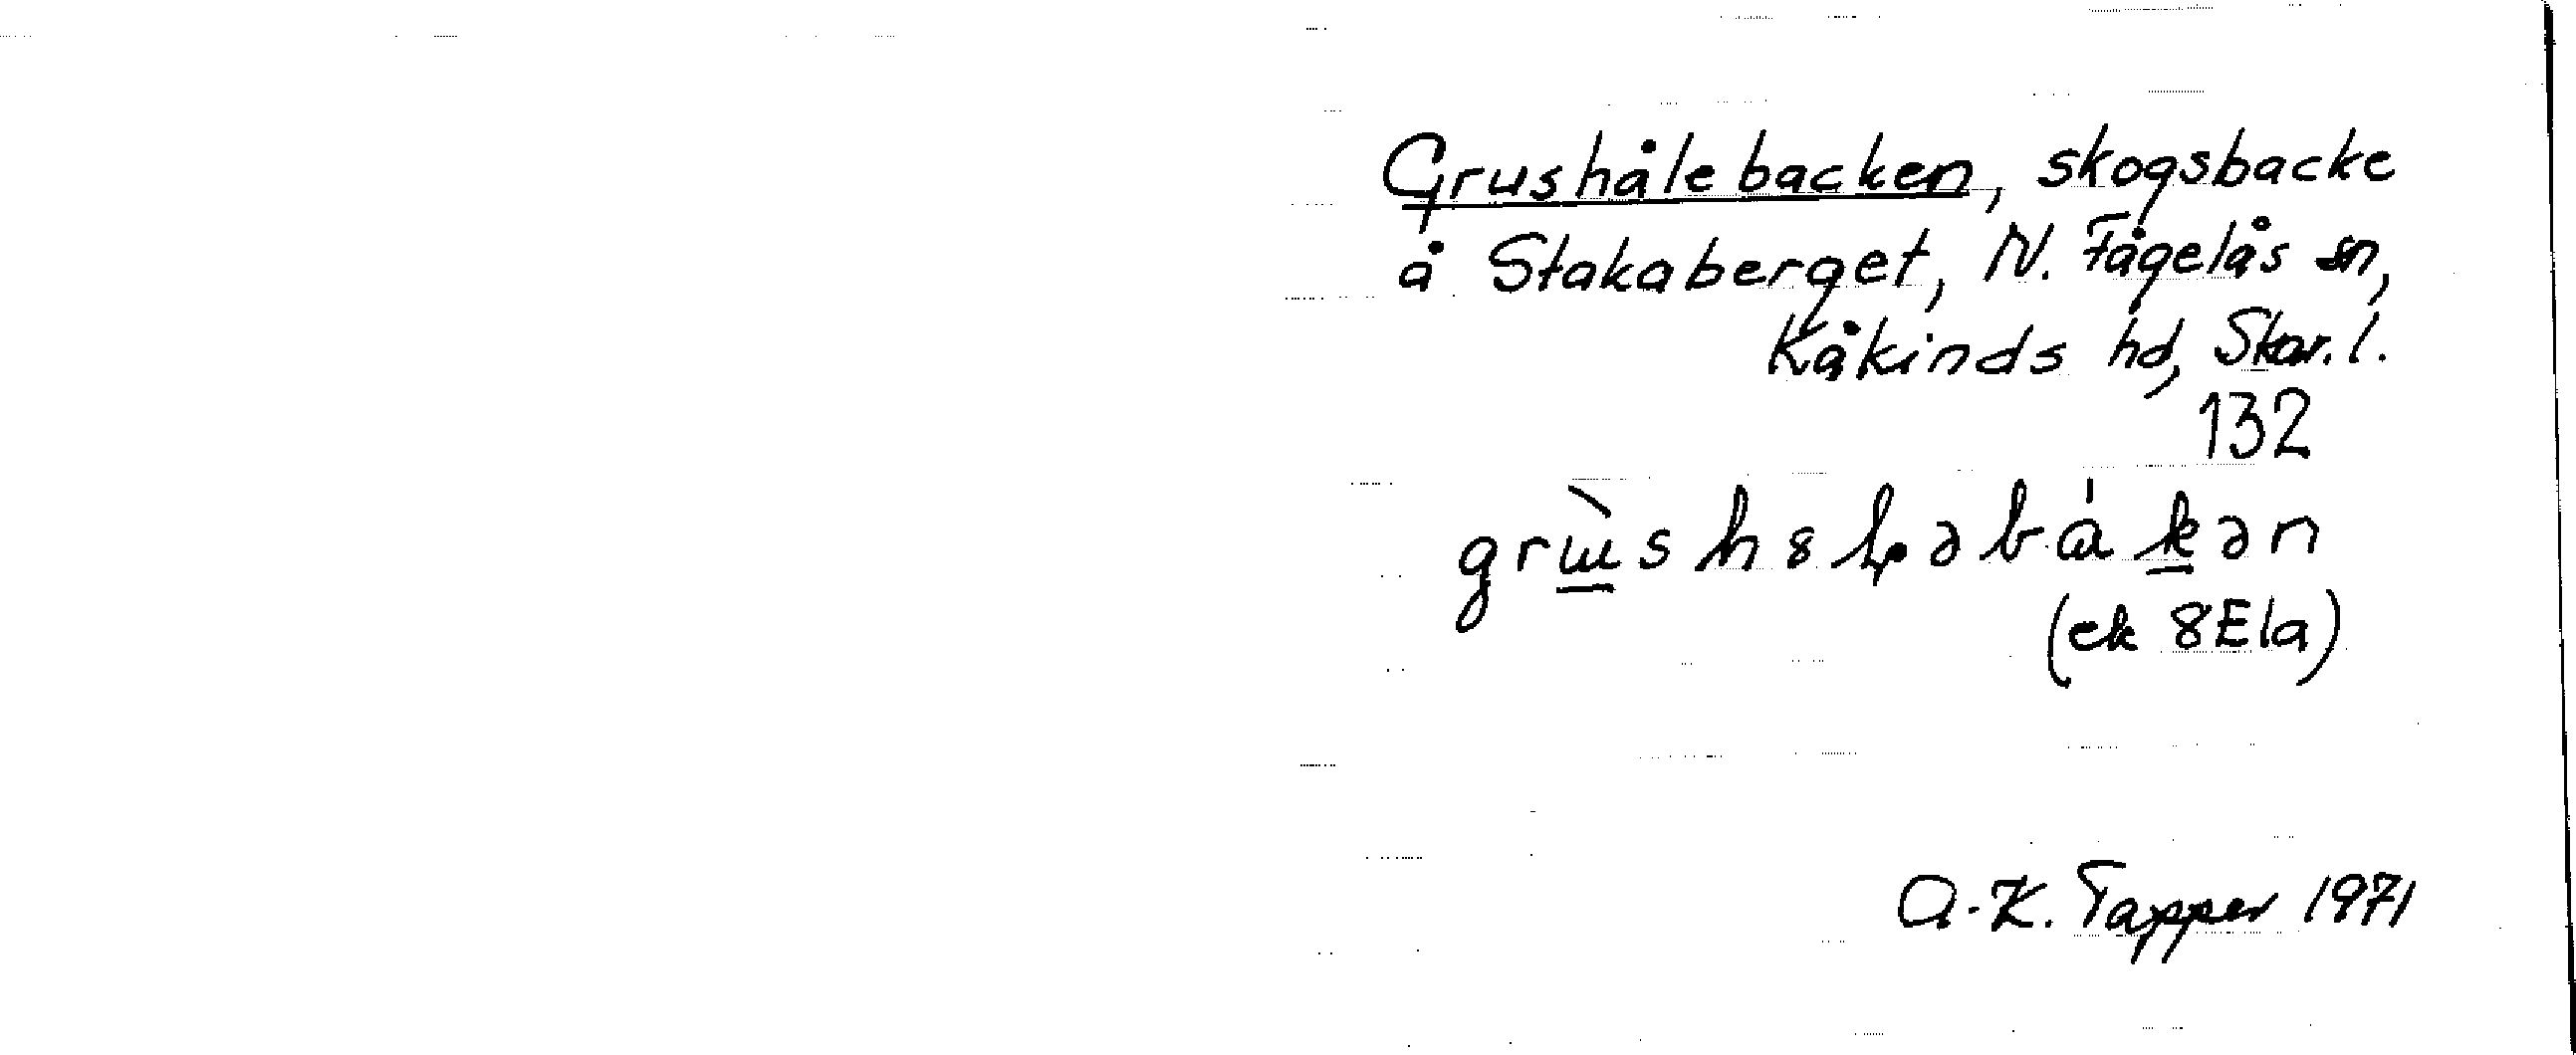 Grushålebacken, skogsbacke
å Stakaberget, N. Fågelås sn,
Kåkinds hd, Skar. l.
132
(ek 8E1a)
A-K. Tapper 1971